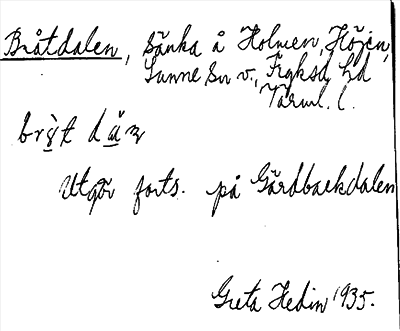 Bråtdalen, sänka å Holmen, Höjen,
Sunne sn v., Fryksd. hd
Värml. l.
Utgör forts. på Gårdbackdalen
Greta Hedin 1935.